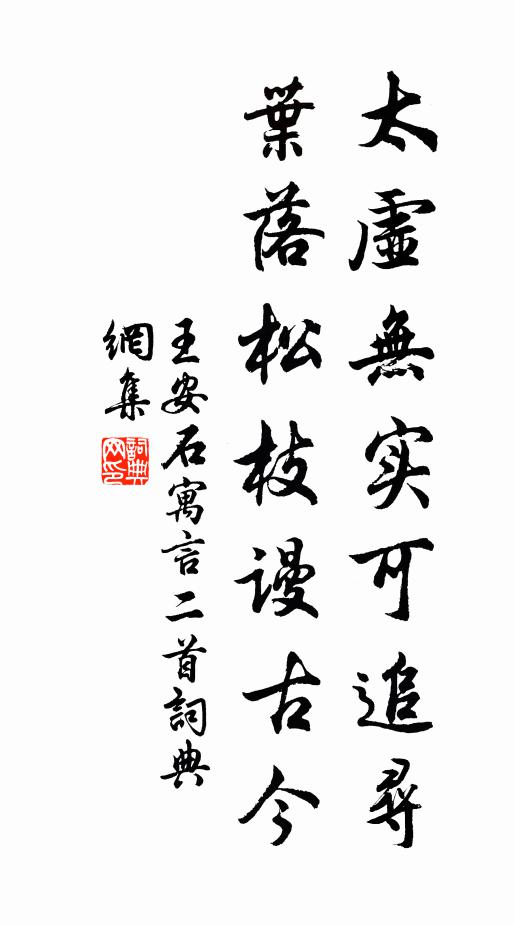 太虛無实可追尋
葉落松枝谩古今
王安石寓言二首詞典
網集
詞典
网印